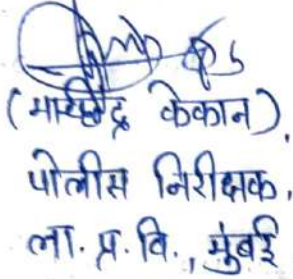 (माच्छिंद्र केकान)
पोलीस निरीक्षक,
ला. प्र. वि., मुंबई